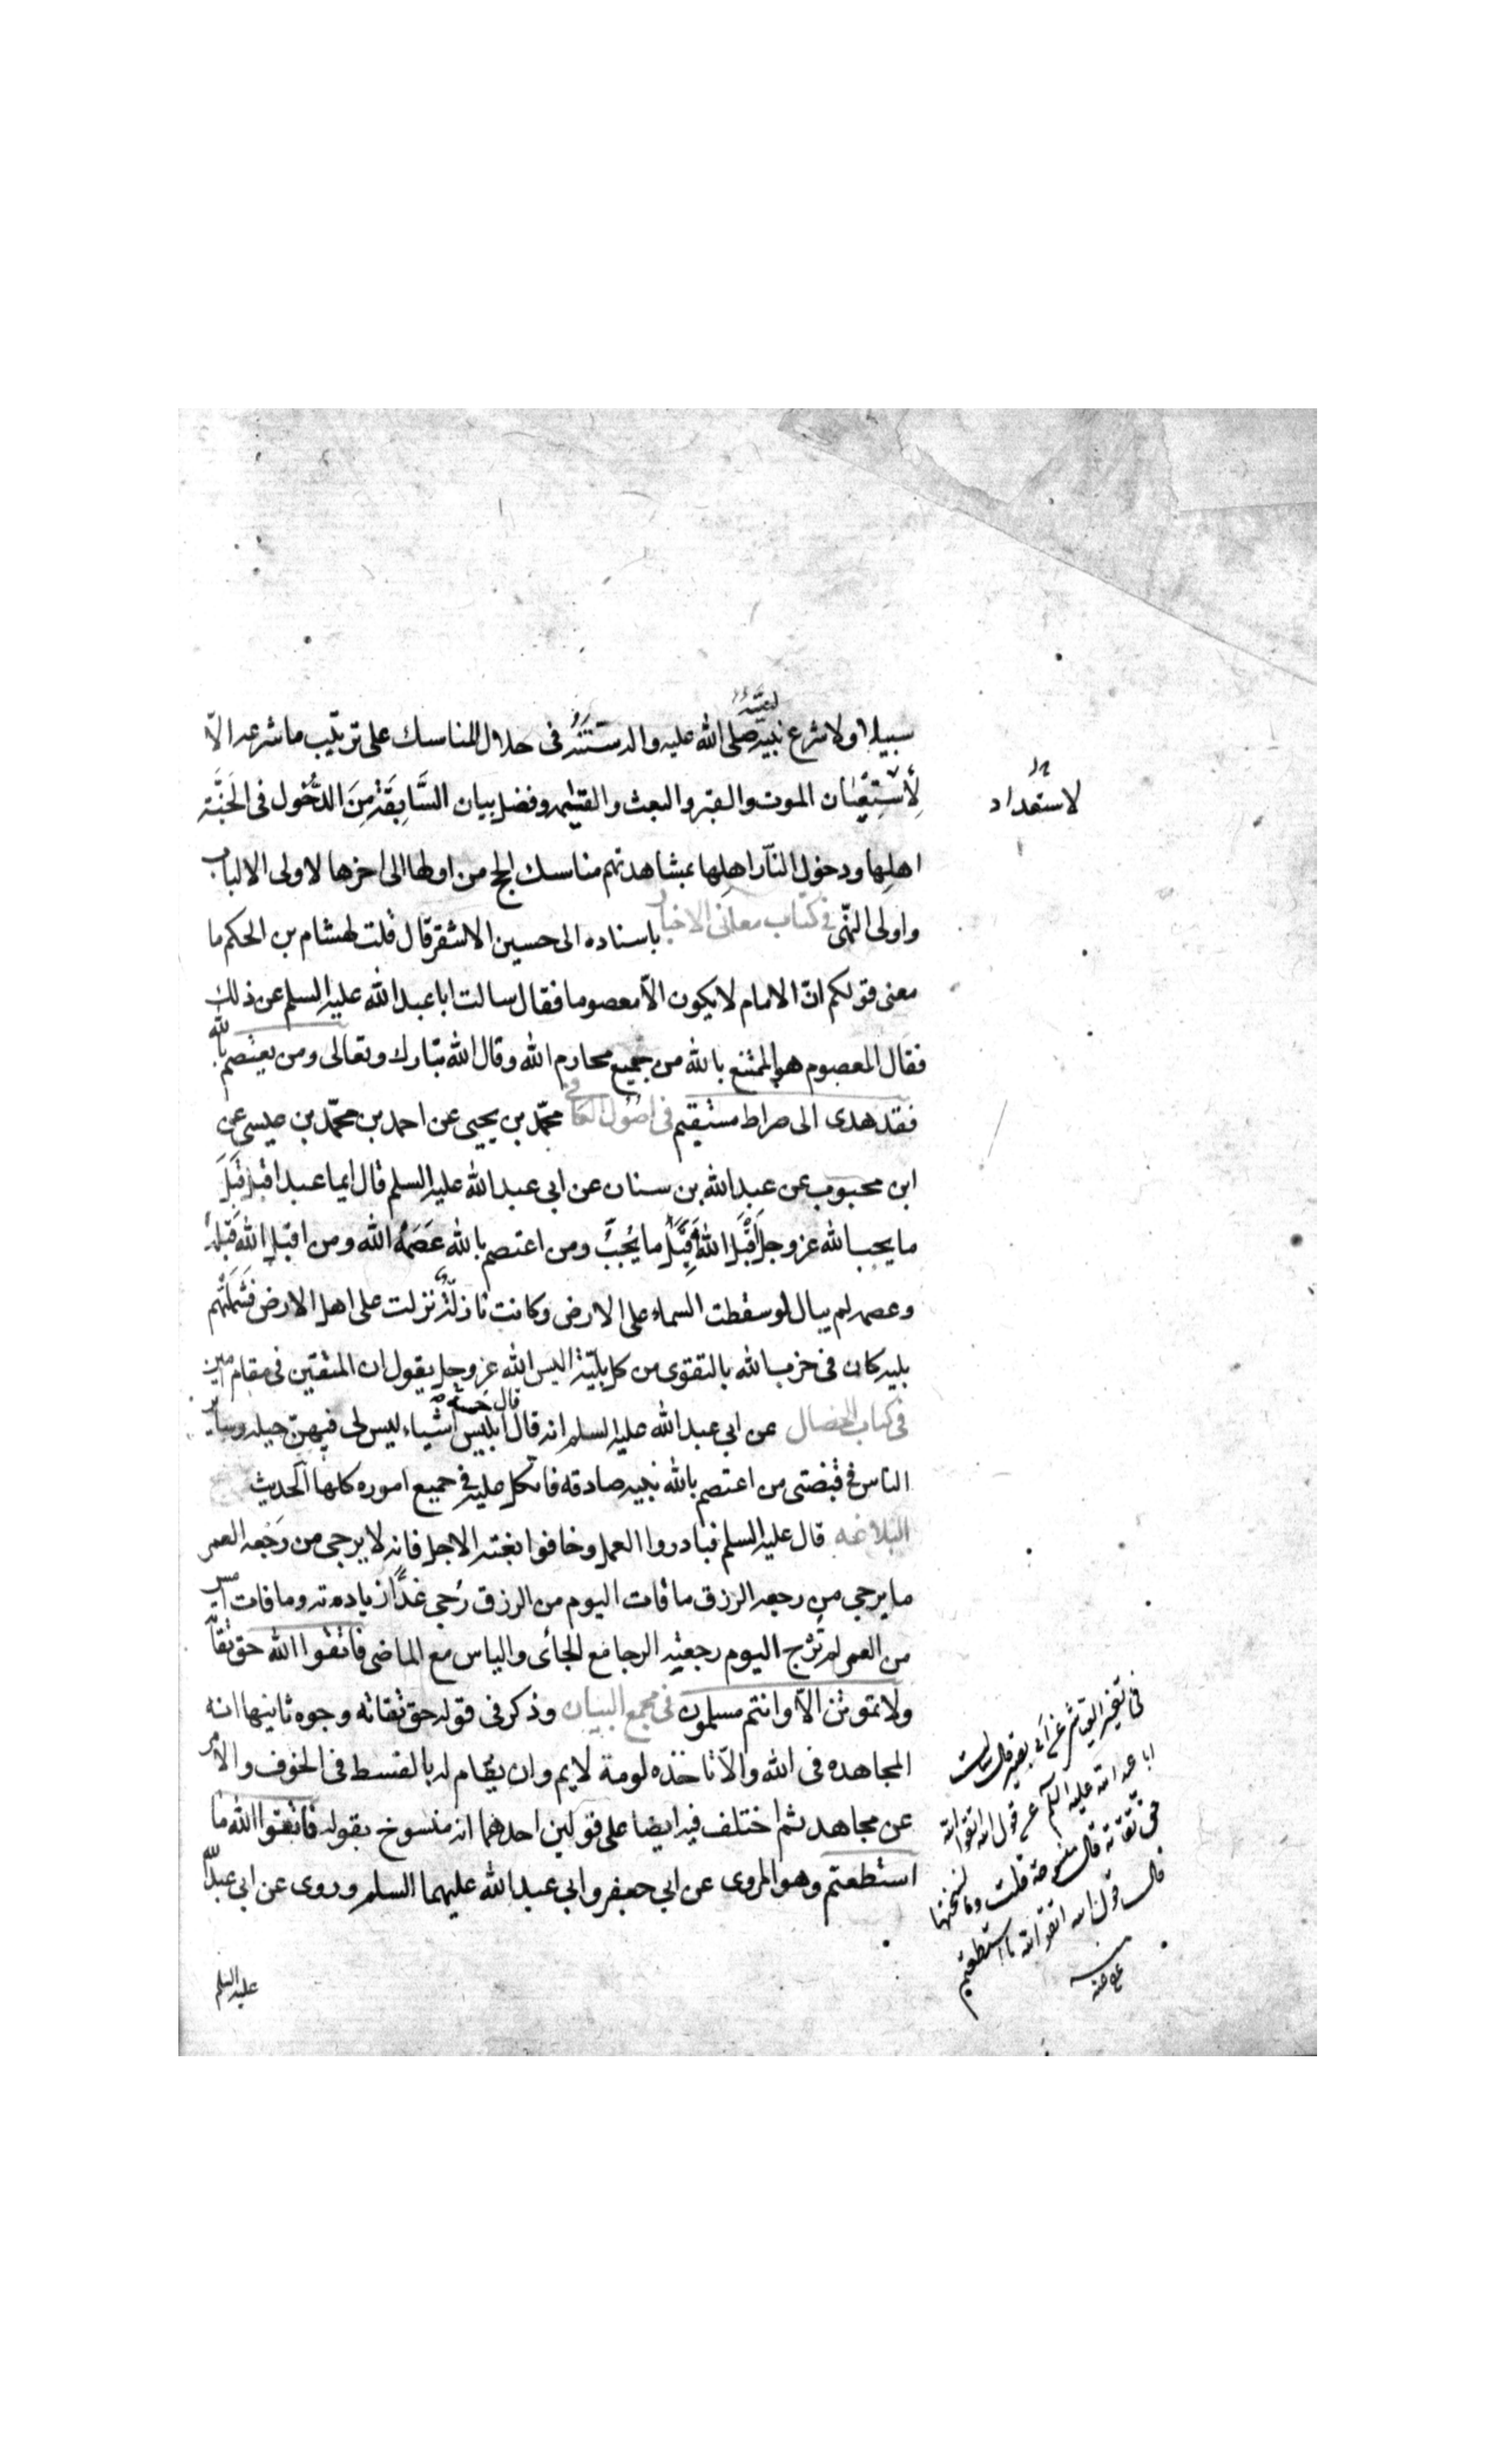 سبيلا ولا شرع نبيه صلى الله عليه واله سنته فى حلال المناسك على ترتيب ما شرعه الا
لاستعيان الموت والقبر والبعث والقيمه وفضل بيان السَّابِقَة مِنَ الدُّخُول فى الجَنَّة
اهلها ودخول النار اهلها بمشاهدتهم مناسك الحج من اولها الى اخرها لاولى الالباب
واولى النهى فى كتاب معانى الاخبار باسناده الى حسين الاشقر قال قلت لهشام بن الحكم ما
معنى قولكم انّ الامام لا يكون الّا معصوما فقال سالت ابا عبد الله عليه السلم عن ذلك
فقال المعصوم هو الممتنع بالله من جميع محارم الله وقال الله تبارك وتعالى ومن يعتصم بالله
فقد هدى الى صراط مستقيم فى اصول الكافى محمّد بن يحيى عن احمد بن محمّد بن عيسى عن
ابن محبوب عن عبد الله بن سنان عن ابى عبد الله عليه السلم قال ايما عبد اقبل قِبَلَ
ما يحب الله عز وجل اقْبَلَ الله قِبَلَ ما يُحِبّ ومن اعتصم بالله عَصَمَهُ الله ومن اقبل الله قِبَلَهُ
وعصمه لم يبال لو سقطت السماء على الارض وكانت نازلة نزلت على اهل الارض فشملتهم
بليه كان فى حزب الله بالتقوى من كل بليّة اليس الله عز وجل يقول ان المتقين فى مقام امين
فى كتاب الخصال عن ابى عبد الله عليه السلم انه قال قال ابليس خمسة اشياء ليس لى فيهنّ حيله وساير
الناس فى قبضتى من اعتصم بالله بنيه صادقه فاتكل عليه فى جميع اموره كلها الحديث
البلاغه قال عليه السلم فبادروا العمل وخافوا بغتة الاجل فانه لا يرجى من رَجْعه العمر
ما يرجى من رجعه الرزق ما فات اليوم من الرزق رُجى غدًا زيادته وما فات امس
من العمر لم تُرْج اليوم رجعته الرجا مع الجائى والياس مع الماضى فاتقوا الله حق تقاته
ولا تموتن الّا وانتم مسلمون فى مجمع البيان وذكر فى قوله حق تقاته وجوه ثانيها انه
المجاهده فى الله والّا تاخذه لومة لايم وان يقام له بالقسط فى الخوف والامن
عن مجاهد ثم اختلف فيه ايضا على قولين احدهما انه منسوخ بقوله فاتقوا الله ما
استطعتم وهو المروى عن ابى جعفر وابى عبد الله عليهما السلم وروى عن ابى عبد الله
عليه السلم
لاستعداد
فى تفسير العياشى عن ابى بصير قال سالت
ابا عبد الله عليه السلم عن قول الله اتقوا الله
حق تقاته قال منسوخة قلت وما نسختها
قال قول الله اتقوا الله ما استطعتم